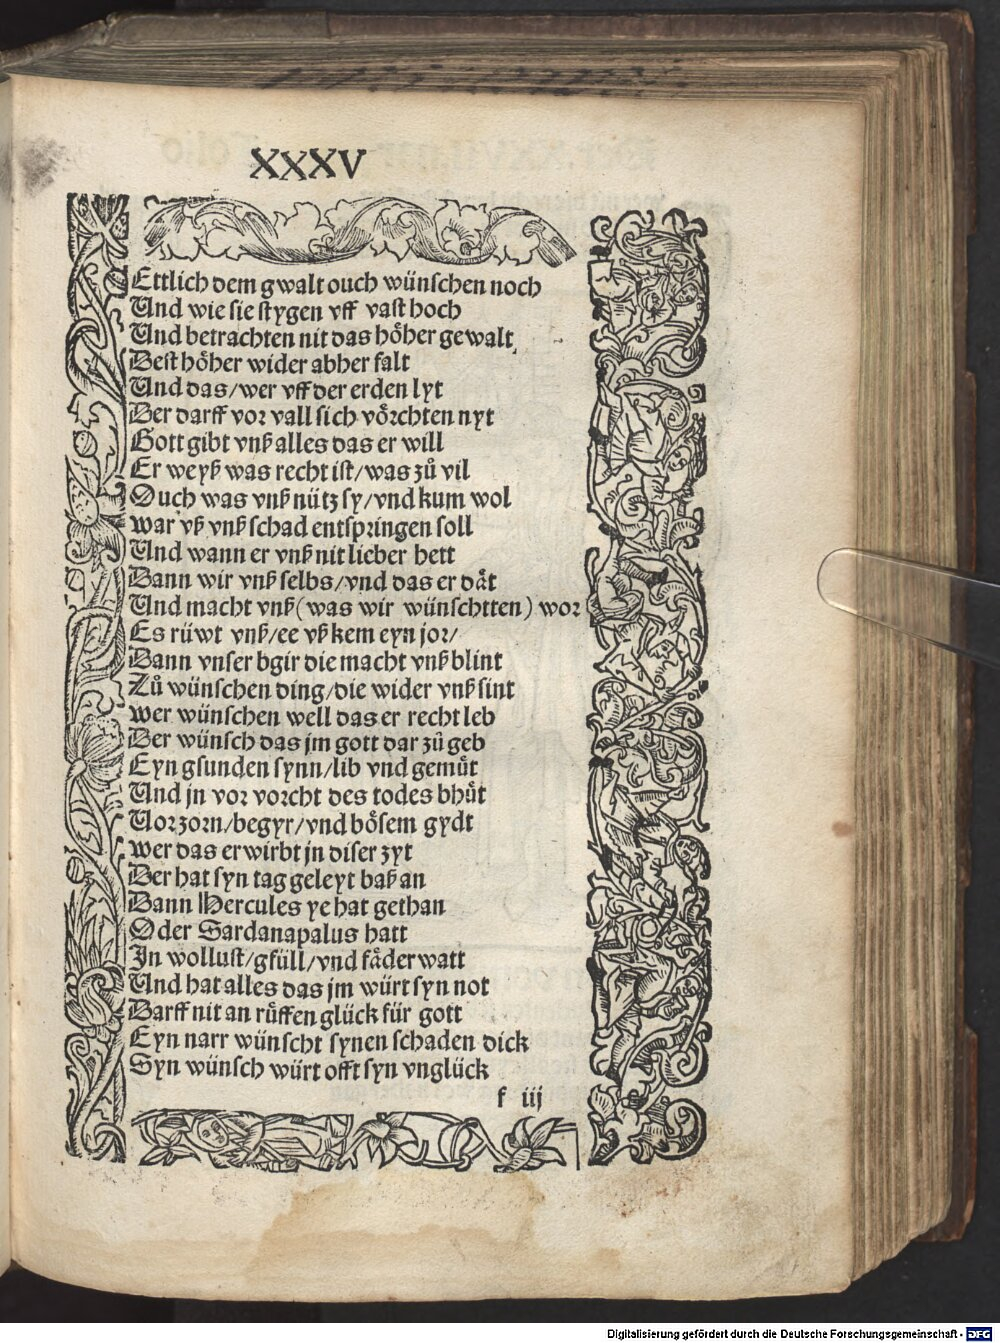 XXXV
Ettlich dem gwalt ouch wünschen noch
Und wie sie stygen vff vast hoch
Und betrachten nit das hoͤher gewalt
Dest hoͤher wider abher falt
Und das/wer vff der erden lyt
Der darff vor vall sich voͤrchten nyt
Gott gibt vnß alles das er will
Er weyß was recht ist/was zuͦ vil
Ouch was vnß nütz sy/vnd kum wol
war vß vnß schad entspringen soll
Und wann er vnß nit lieber hett
Dann wir vnß selbs/vnd das er daͤt
Und macht vnß (was wir wünschtten) wor
Es rüwt vnß/ee vß kem eyn jor/
Dann vnser bgir die macht vnß blint
Zuͦ wünschen ding/die wider vnß sint
wer wünschen well das er recht leb
Der wünsch das jm gott dar zuͦ geb
Eyn gsunden synn/lib vnd gemuͤt
Und jn vor vorcht des todes bhuͤt
Vor zorn/begyr/vnd boͤsem gydt
wer das erwirbt jn diser zyt
Der hat syn tag geleyt baß an
Dann Hercules ye hat gethan
Oder Sardanapalus hatt
Jn wollust/gfüll/vnd faͤderwatt
Und hat alles das jm würt syn not
Darff nit an ruͤffen glück für gott
Eyn narr wünscht synen schaden dick
Syn wünsch würt offt syn vnglück
f iij
Digitalisierung gefördert durch die Deutsche Forschungsgemeinschaft - DFG